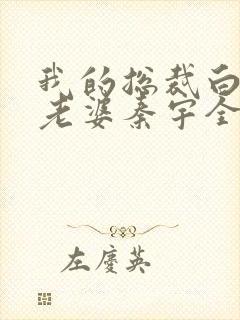 我的总裁白
老婆秦宇全
左庆英